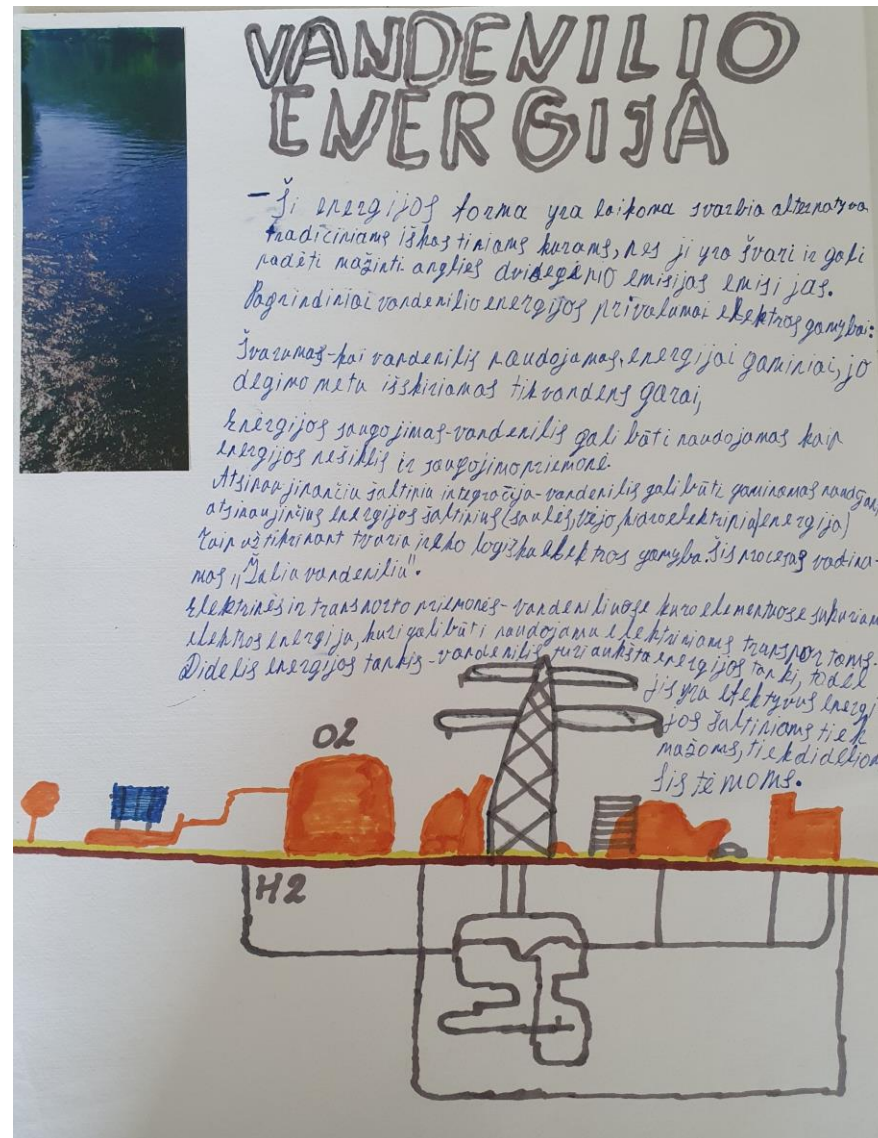 VANDENILIO
ENERGIJA
- Ši energijos forma yra laikoma svarbia alternatyva
tradiciniams iškastiniams kurams, nes ji yra švari ir gali
padėti mažinti anglies dvidegenio emisijas emisijas.
Pagrindiniai vandenilio energijos privalumai elektros gamybai:
Švarumas-kai vandenilis naudojamas energijai gaminiai, jo
degimo metu išskiriamas tik vandens garai,
Energijos saugojimas-vandenilis gali būti naudojamas kaip
energijos nešiklis ir saugojimo priemonė.
Atsinaujinančiu šaltiniu integracija-vandenilis gali būti gaminamas
atsinaujinčius energijos šaltinius (saulės, vėjo, hidroelektrinia energija)
Taip užtikrinant tvaria ir ekologiška elektros gamyba. Šis procesas vadina-
mas "Žalia vandeniliu".
Elektrinės ir transporto priemonės-vandeniliuose kuro elementuose sukuriam
elektros energija, kuri gali būti naudojama elektriniams transportams-
Didelis energijos tankis-vandenilis turi aukšta energijos tankį, todėl
jis yra efektyvus energi
jos šaltiniams tiek
mažoms, tiek didelioms
sistemoms.
O2
H2